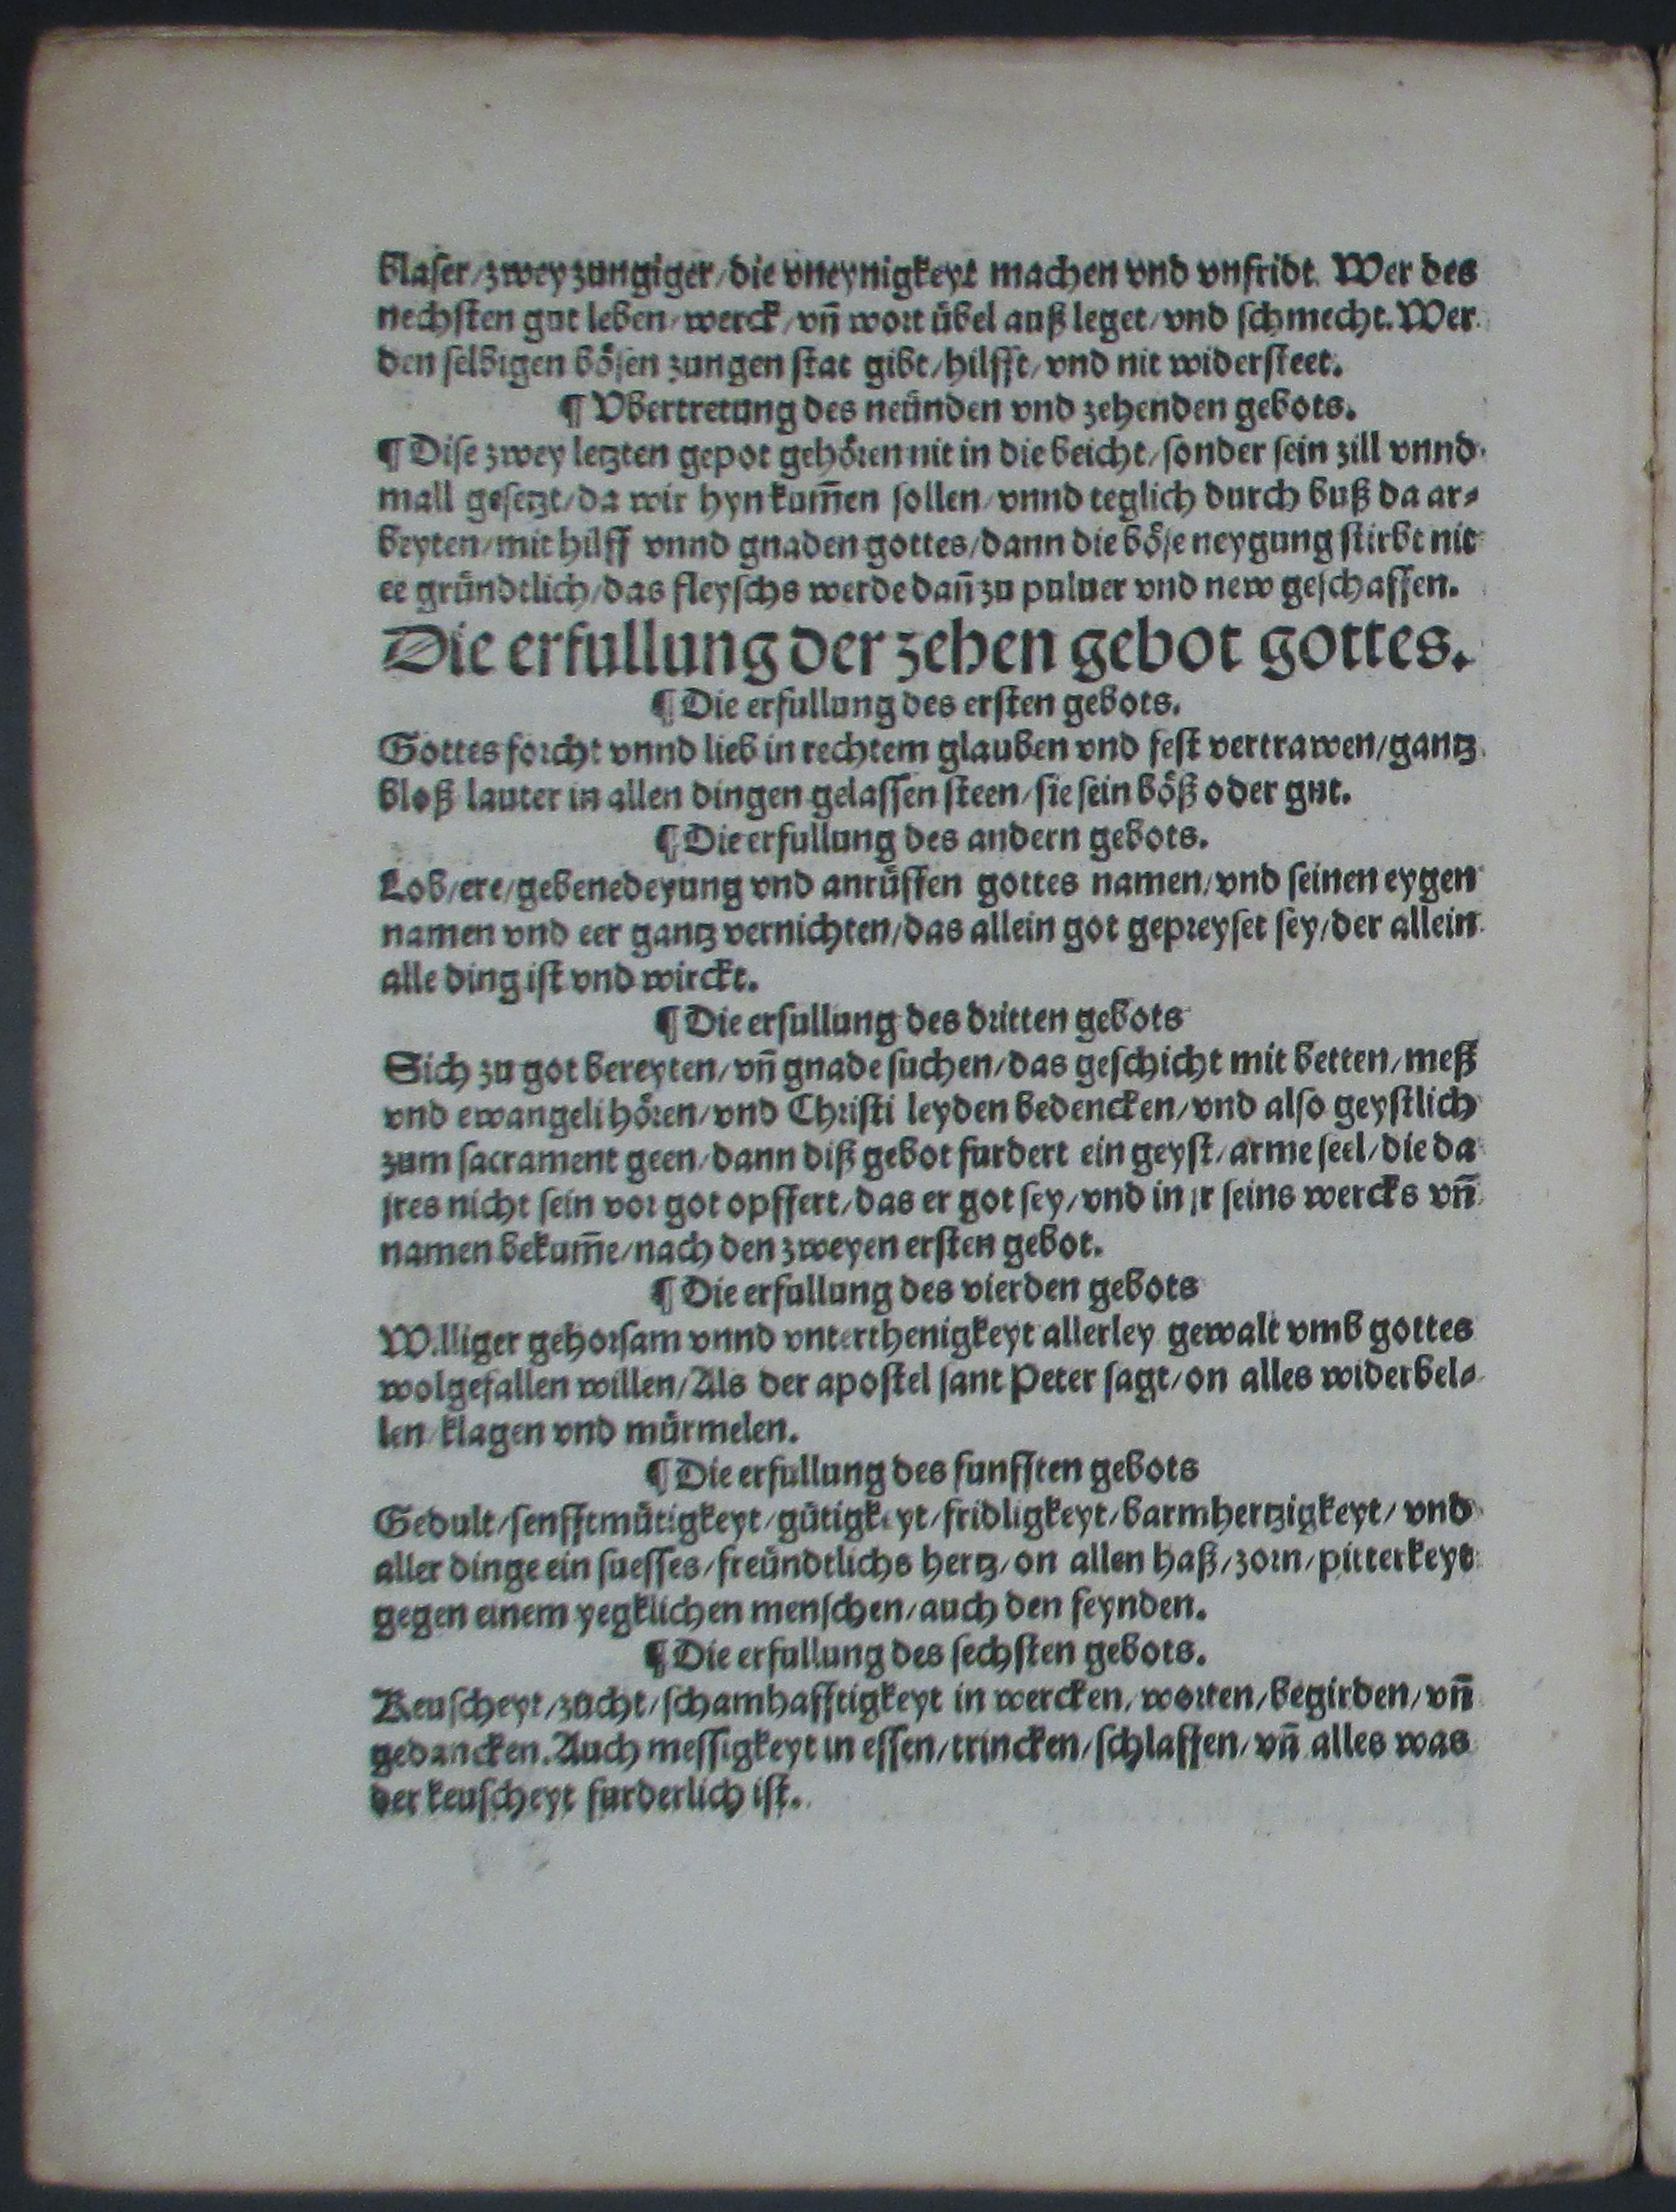 blaſer/zweyzungiger/die vneynigkeyt machen vnd vnfridt. Wer des
nechſten gut leben/werck/vn̄ wort übel auß leget/vnd ſchmecht. Wer
den ſelbigen böſen zungen ſtat gibt/hilfft/vnd nit widerſteet.
¶ Vbertretung des neünden vnd zehenden gebots.
¶ Diſe zwey letzten gepot gehören nit in die beicht/ſonder ſein zill vnnd
mall geſetzt/da wir hyn kum̄en ſollen/vnnd teglich durch buß da ar⸗
beyten/mit hilff vnnd gnaden gottes/dann die böſe neygung ſtirbt nit
ee gründtlich/das fleyſchs werde dan̄ zu puluer vnd new geſchaffen.
Die erfullung der zehen gebot gottes.
¶ Die erfullung des erſten gebots.
Gottes forcht vnnd lieb in rechtem glauben vnd feſt vertrawen/gantz
bloß lauter in allen dingen gelaſſen ſteen/ſie ſein böß oder gut.
¶ Die erfullung des andern gebots.
Lob/ere/gebenedeyung vnd anrüffen gottes namen/vnd ſeinen eygen
namen vnd eer gantz vernichten/das allein got gepreyſet ſey/der allein
alle ding iſt vnd wirckt.
¶ Die erfullung des dritten gebots
Sich zu got bereyten/vn̄ gnade ſuchen/das geſchicht mit betten/meß
vnd ewangeli hören/vnd Chriſti leyden bedencken/vnd alſo geyſtlich
zum ſacrament geen/dann diß gebot furdert ein geyſt/arme ſeel/die da
jres nicht ſein vor got opffert/das er got ſey/vnd in jr ſeins wercks vn̄
namen bekum̄e/nach den zweyen erſten gebot.
¶ Die erfullung des vierden gebots
Williger gehorſam vnnd vnterthenigkeyt allerley gewalt vmb gottes
wolgefallen willen/Als der apoſtel ſant Peter ſagt/on alles widerbel⸗
len/klagen vnd mürmelen.
¶ Die erfullung des funfften gebots
Gedult/ſenfftmütigkeyt/gütigkeyt/fridligkeyt/barmhertzigkeyt/vnd
aller dinge ein ſueſſes/freündtlichs hertz/on allen haß/zorn/pitterkeyt
gegen einem yegklichen menſchen/auch den feynden.
¶ Die erfullung des ſechſten gebots.
Keuſcheyt/zucht/ſchamhafftigkeyt in wercken/worten/begirden/vn̄
gedancken. Auch meſſigkeyt in eſſen/trincken/ſchlaffen/vn̄ alles was
der keuſcheyt furderlich iſt.